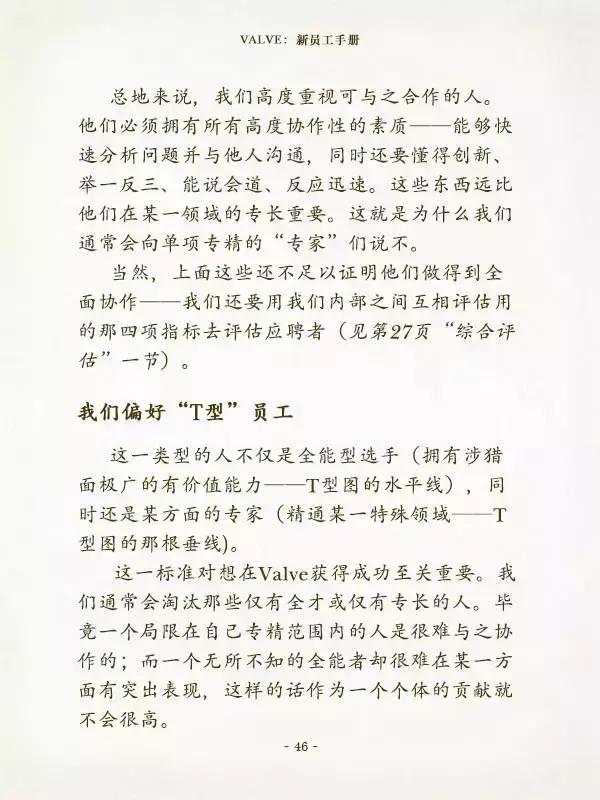 VALVE：新员工手册
总地来说，我们高度重视可与之合作的人。
他们必须拥有所有高度协作性的素质——能够快
速分析问题并与他人沟通，同时还要懂得创新、
举一反三、能说会道、反应迅速。这些东西远比
他们在某一领域的专长重要。这就是为什么我们
通常会向单项专精的“专家”们说不。
当然，上面这些还不足以证明他们做得到全
面协作——我们还要用我们内部之间互相评估用
的那四项指标去评估应聘者（见第27页“综合评
估”一节）。
我们偏好“T型”员工
这一类型的人不仅是全能型选手（拥有涉猎
面极广的有价值能力——T型图的水平线），同
时还是某方面的专家（精通某一特殊领域——T
型图的那根垂线)。
这一标准对想在Valve获得成功至关重要。我
们通常会淘汰那些仅有全才或仅有专长的人。毕
竟一个局限在自己专精范围内的人是很难与之协
作的；而一个无所不知的全能者却很难在某一方
面有突出表现，这样的话作为一个个体的贡献就
不会很高。
- 46 -